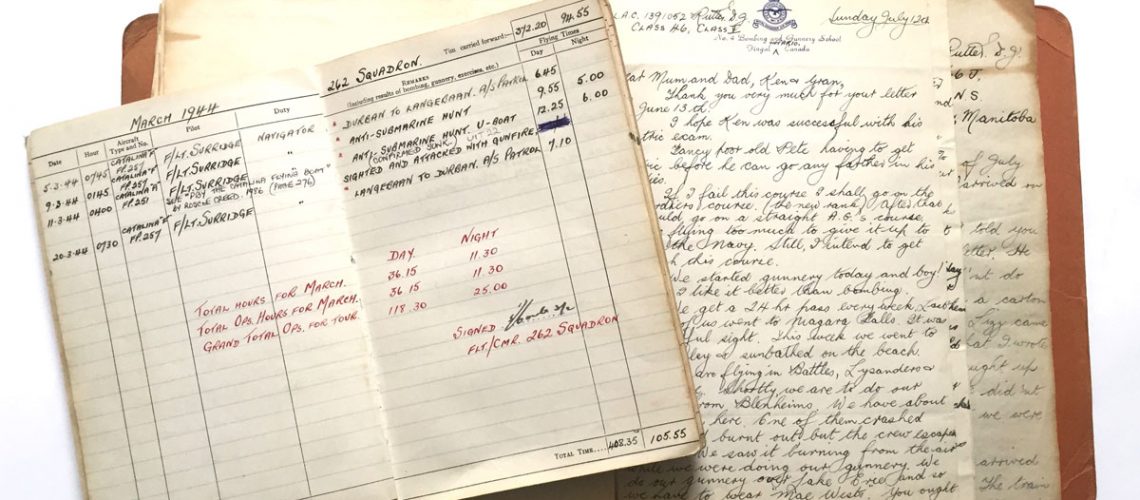 MARCH 1944
Date
Hour
Aircraft
Type and No.
Pilot
Duty
5.3.44 0745 CATALINA "F" FP.257 F/LT. SURRIDGE NAVIGATOR
9.3.44 0145 CATALINA "F" FP.257 F/LT. SURRIDGE "
11.3.44 0400 CATALINA FP.257 F/LT. SURRIDGE "
SEE "PBY THE CATALINA FLYING BOAT"
BY ROSCOE CREED. 1986 (PAGE 276)
20-3-44 0730 CATALINA FP.257 F/LT. SURRIDGE "
TOTAL HOURS FOR MARCH.
TOTAL OPS. HOURS FOR MARCH.
GRAND TOTAL OPS. FOR TOUR.
262 SQUADRON.
Time carried forward:— 372.20 94.55
REMARKS
(Including results of bombing, gunnery, exercises, etc.)
Flying Times
Day
Night
* DURBAN TO LANGEBAAN. A/S PATROL 6.45
* ANTI-SUBMARINE HUNT 9.55 5.00
* ANTI-SUBMARINE HUNT. U-BOAT 12.25 6.00
(CONFIRMED SUNK)
SIGHTED AND ATTACKED WITH GUNFIRE.
* LANGEBAAN TO DURBAN. A/S PATROL 7.10
DAY NIGHT
36.15 11.30
36.15 11.30
118.30 25.00
SIGNED
FLT./CMR. 262 SQUADRON
TOTAL TIME.... 408.35 105.55
L.A.C. 1391052 Rutter. D.G.
CLASS A6, CLASS I
Sunday July 12th
No. 4 Bombing and Gunnery School
ONTARIO
Fingal Canada
Mum and Dad, Ken & Gran,
Thank you very much for your letter
June 13th.
I hope Ken was successful with his
exam.
Fancy poor old Pete having to get
before he can go any farther in his
If I fail this course I shall go on the
course, (the new rank) after that
go on a straight A.G.'s course,
flying too much to give it up to
the Navy. Still, I intend to get
this course.
We started gunnery today and boy!
I like it better than bombing.
We get a 24 hr pass every week. Last
of us went to Niagara Falls. It was
sight. This week we went to
& sunbathed on the beach.
flying in Battles, Lysanders &
shortly we are to do our
from Blenheims. We have about
here. One of them crashed
burnt out but the crew escaped
We saw it burning from the air
while we were doing our gunnery. We
do our gunnery over Lake Erie and so
we have to wear Mae Wests. You ought
Rutter. D.G.
Manitoba
of July
arrived in
told you
letter. He
do
a carton
Lizy came
I wrote
up
did'nt
we were
arrived
The train